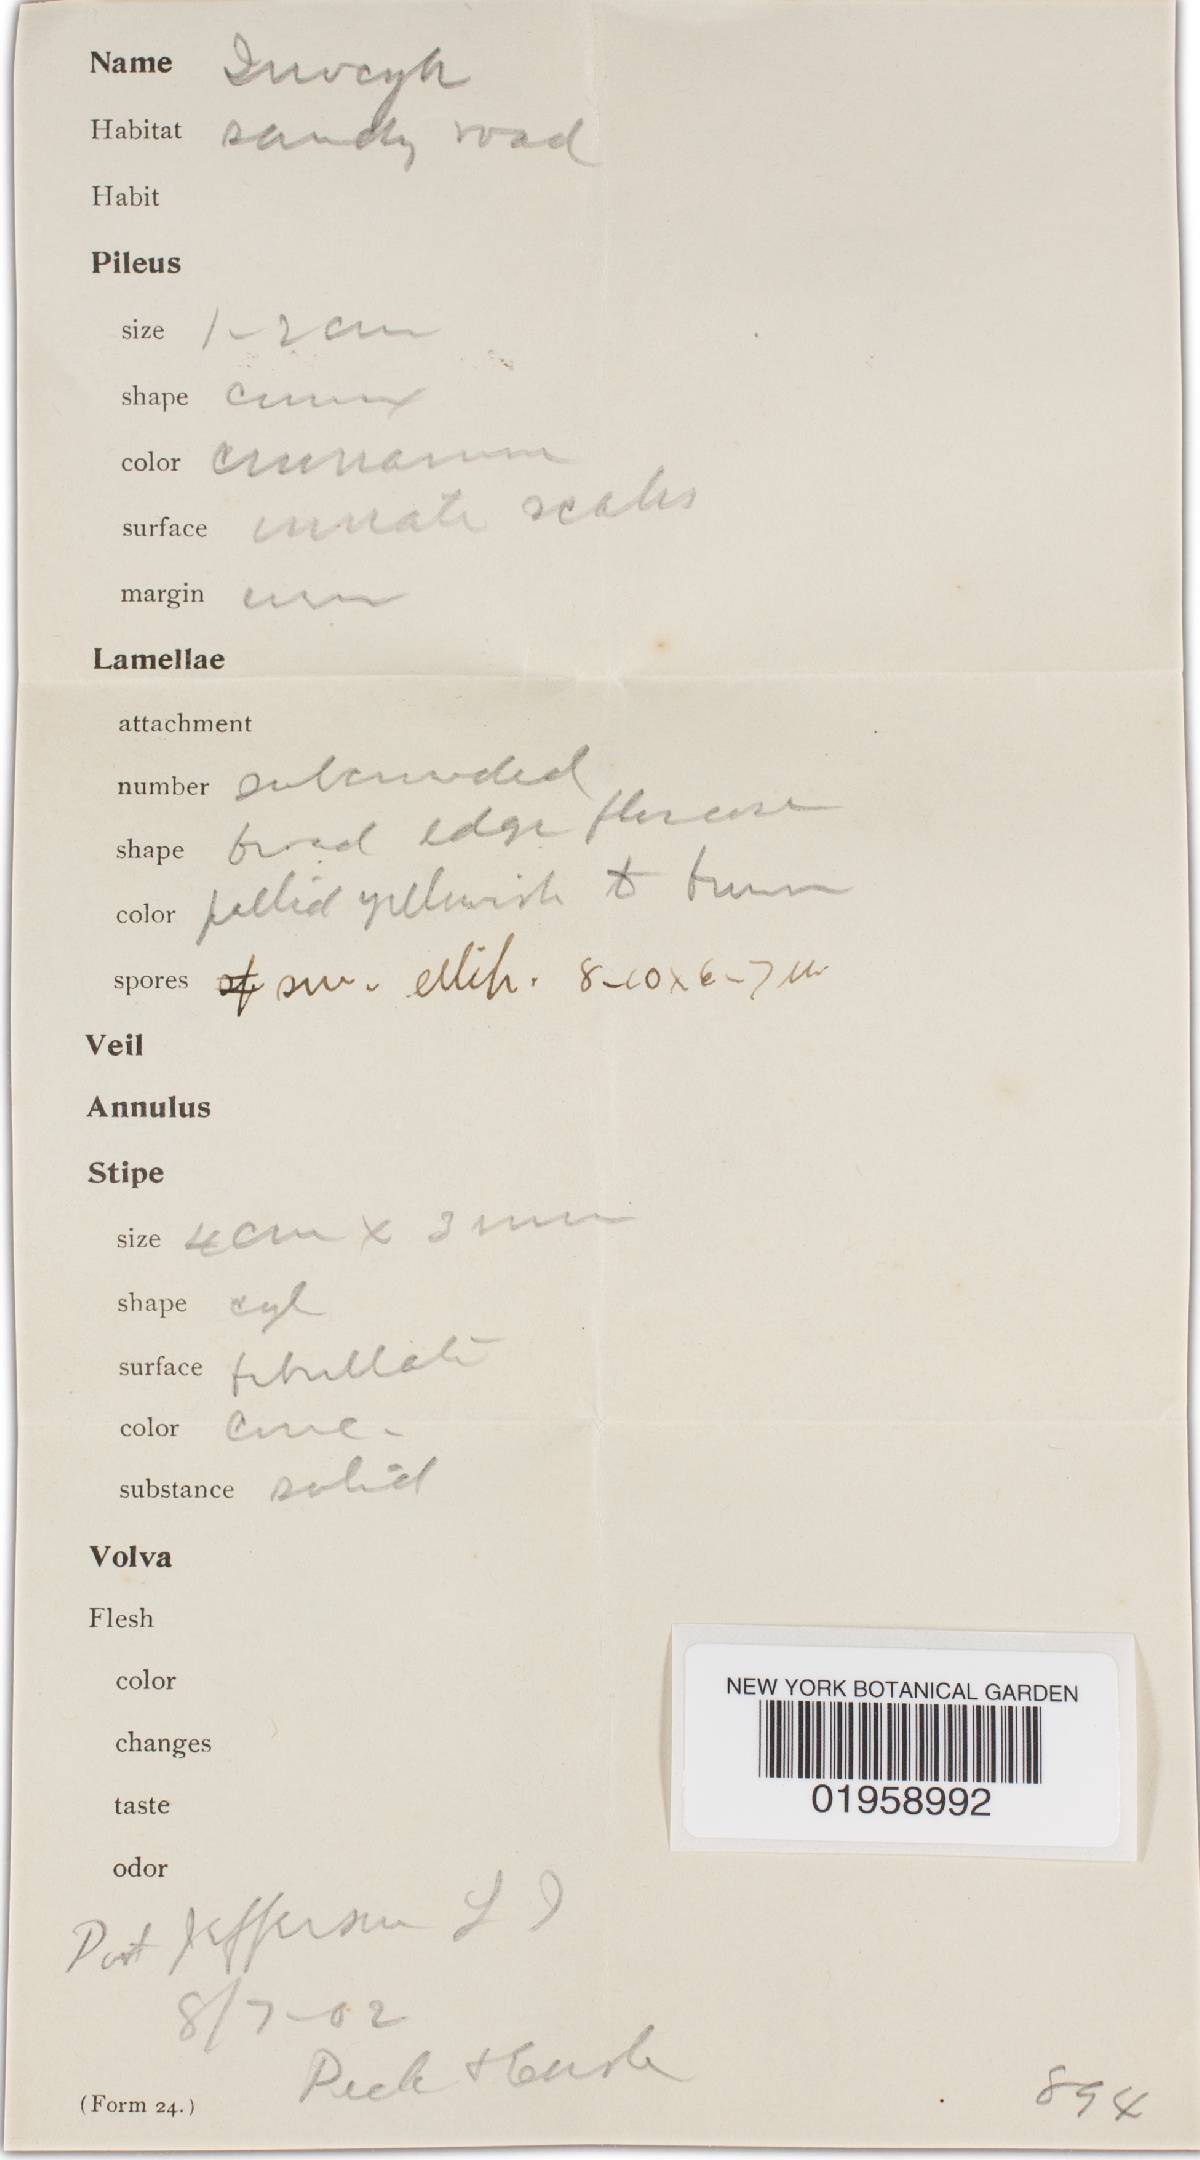 Name Inocyb
Habitat sandy road
Habit
Pileus
size 1-2 cm
shape convex
color cinnamon
surface innate scales
margin
Lamellae
attachment
number subcrowded
shape broad edge
color pallid yellowish to brown
spores sm. ellip. 8-10x6-7 µ
Veil
Annulus
Stipe
size 4cm x 3mm
shape cyl
surface fibrillate
color conc.
substance solid
Volva
Flesh
color
changes
taste
odor
NEW YORK BOTANICAL GARDEN
01958992
Port Jefferson L I
8/7-02
Peck +
(Form 24.)
894